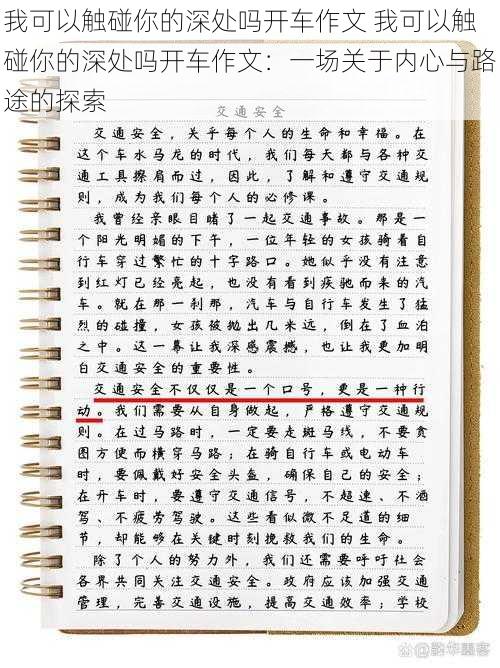 我可以触碰你的深处吗开车作文 我可以触
碰你的深处吗开车作文：一场关于内心与路
途的探索
交通安全
交通安全，关乎每个人的生命和幸福。在
这个车水马龙的时代，我们每天都与各种交
通工具擦肩而过，因此，了解和遵守交通规
则，成为我们每个人的必修课。
我曾经亲眼目睹了一起交通事故。那是一
个阳光明媚的下午，一位年轻的女孩骑着自
行车穿过繁忙的十字路口。她似乎没有注意
到红灯已经亮起，也没有看到疾驰而来的汽
车。就在那一刹那，汽车与自行车发生了猛
烈的碰撞，女孩被抛出几米远，倒在了血泊
之中。这一幕让我深感震撼，也让我更加明
白交通安全的重要性。
交通安全不仅仅是一个口号，更是一种行
动。我们需要从自身做起，严格遵守交通规
则。在过马路时，一定要走斑马线，不要贪
图方便而横穿马路；在骑自行车或电动车
时，要佩戴好安全头盔，确保自己的安全；
在开车时，要遵守交通信号，不超速、不酒
驾、不疲劳驾驶。这些看似微不足道的细
节，却能够在关键时刻挽救我们的生命。
除了个人的努力外，我们还需要呼吁社会
各界共同关注交通安全。政府应该加强交通
管理，完善交通设施，提高交通效率；学校